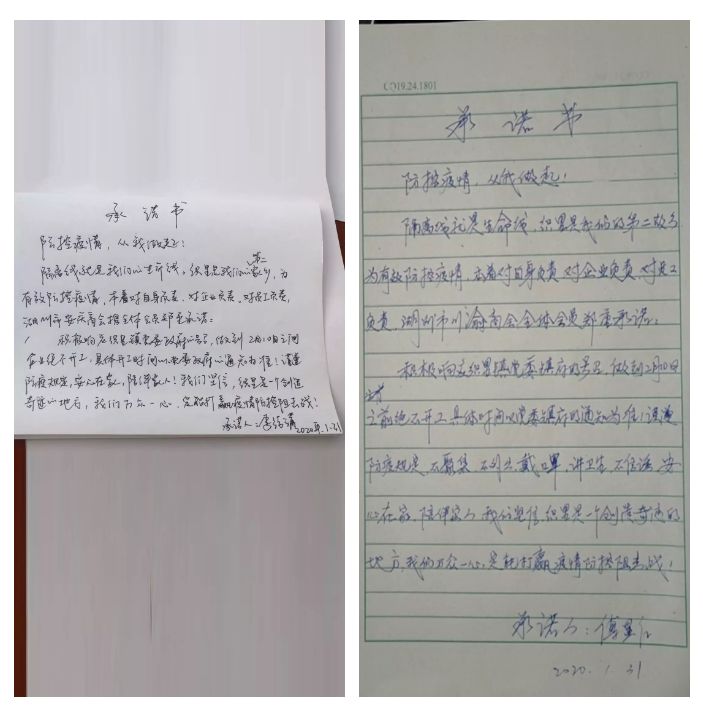 承诺书
防控疫情,从我做起!
隔离线就是我们的生命线,织里是我们的第二故乡,为
有效防控疫情,本着对自身负责、对企业负责、对员工负责,
湖州市安庆商会携全体会员郑重承诺:
积极响应织里镇党委政府的号召,做到2月10日之前
企业绝不开工,具体开工时间以党委政府的通知为准!谨遵
防疫规定,安心在家,陪伴家人!我们坚信,织里是一个创造
奇迹的地方,我们万众一心,定能打赢疫情防控阻击战!
承诺人:李
2020.1.31
C019.24.1801
承诺书
防控疫情,从我做起!
隔离线就是生命线,织里是我们的第二故乡
为有效防控疫情,本着对自身负责,对企业负责,对员工
负责,湖州市川渝商会全体会员郑重承诺:
积极响应织里镇党委镇府的号召,做到2月10日
之前绝不开工,具体时间以党委镇府的通知为准!谨遵
防疫规定,不聚集,不外出,戴口罩,讲卫生,不信谣,安
心在家,陪伴家人,我们坚信,织里是一个创造奇迹的
地方,我们万众一心,定能打赢疫情防控阻击战!
承诺人:傅
2020.1.31